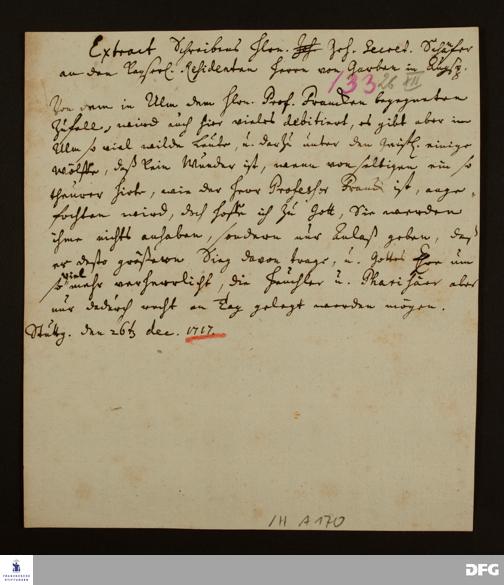 Extract Schreibens Hrn. Joh. Secret. Schäfer
an den Kayserl. Residenten Herrn von Garben in Augsp.
133 26 XII
Von dem in Ulm dem Hrn. Prof. Francken begegneten
Zufall, wird auch hier vieles debitiert, es gibt aber in
Ulm so viel wilde Leuthe, u. darzu unter den Geistl. einige
Wölffe, daß kein Wunder ist, wenn von selbigen ein so
theurer Hirte, wie der Herr Professor Franck ist, ange-
fochten wird, doch hoffe ich zu Gott, Sie werden
ihme nichts anhaben, sondern nur Anlaß geben, daß
er desto größern Sieg davon trage, u. Gottes Ehre um
so viel mehr verherrlicht, die Heuchler u. Pharisäer aber
nur dadurch recht an Tag gelegt werden mögen.
Stuttg. den 26t dec. 1717.
1H A 170
FRANCKESCHE
STIFTUNGEN
DFG